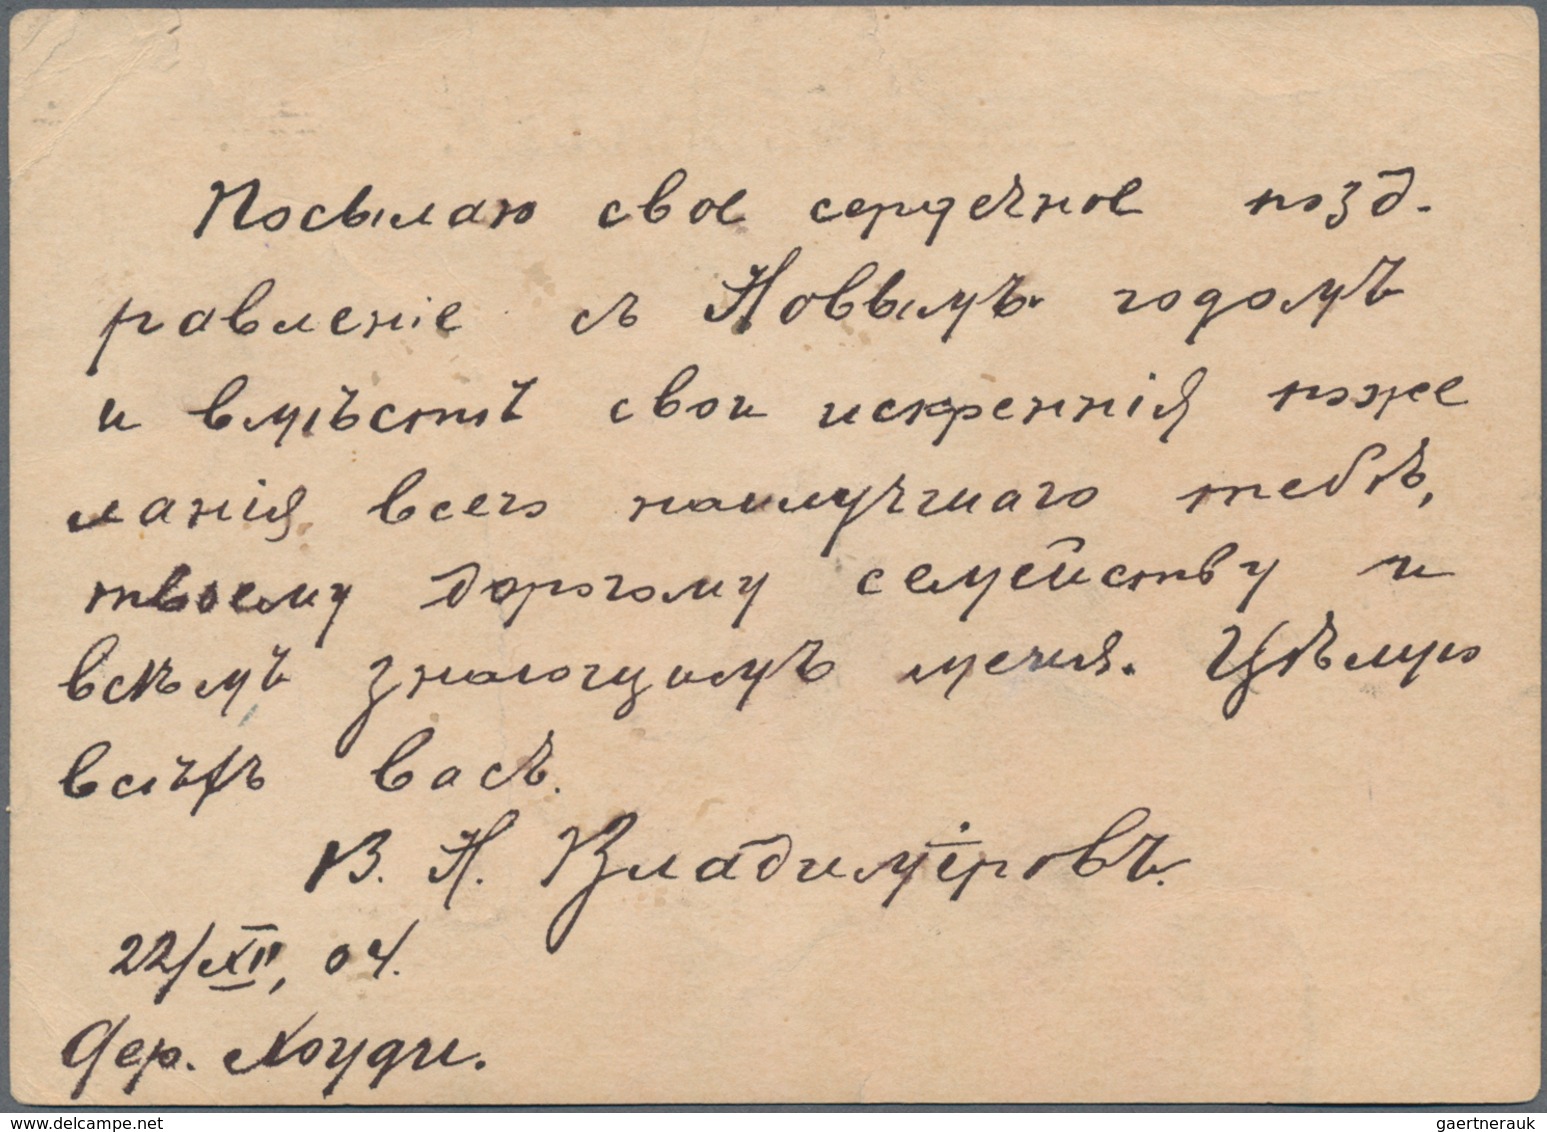 Посылаю свое сердечное позд-
равленіе съ Новымъ годомъ
и вмѣстѣ свои искреннія поже
ланія всего наилучшаго тебѣ,
твоему дорогому семейству и
всѣмъ знающимъ меня. Цѣлую
всѣхъ васъ.
В. Н. Владиміровъ.
22/XII, 04.
Дер. Хоуди.
the-saleroom.com
gaertnerauk